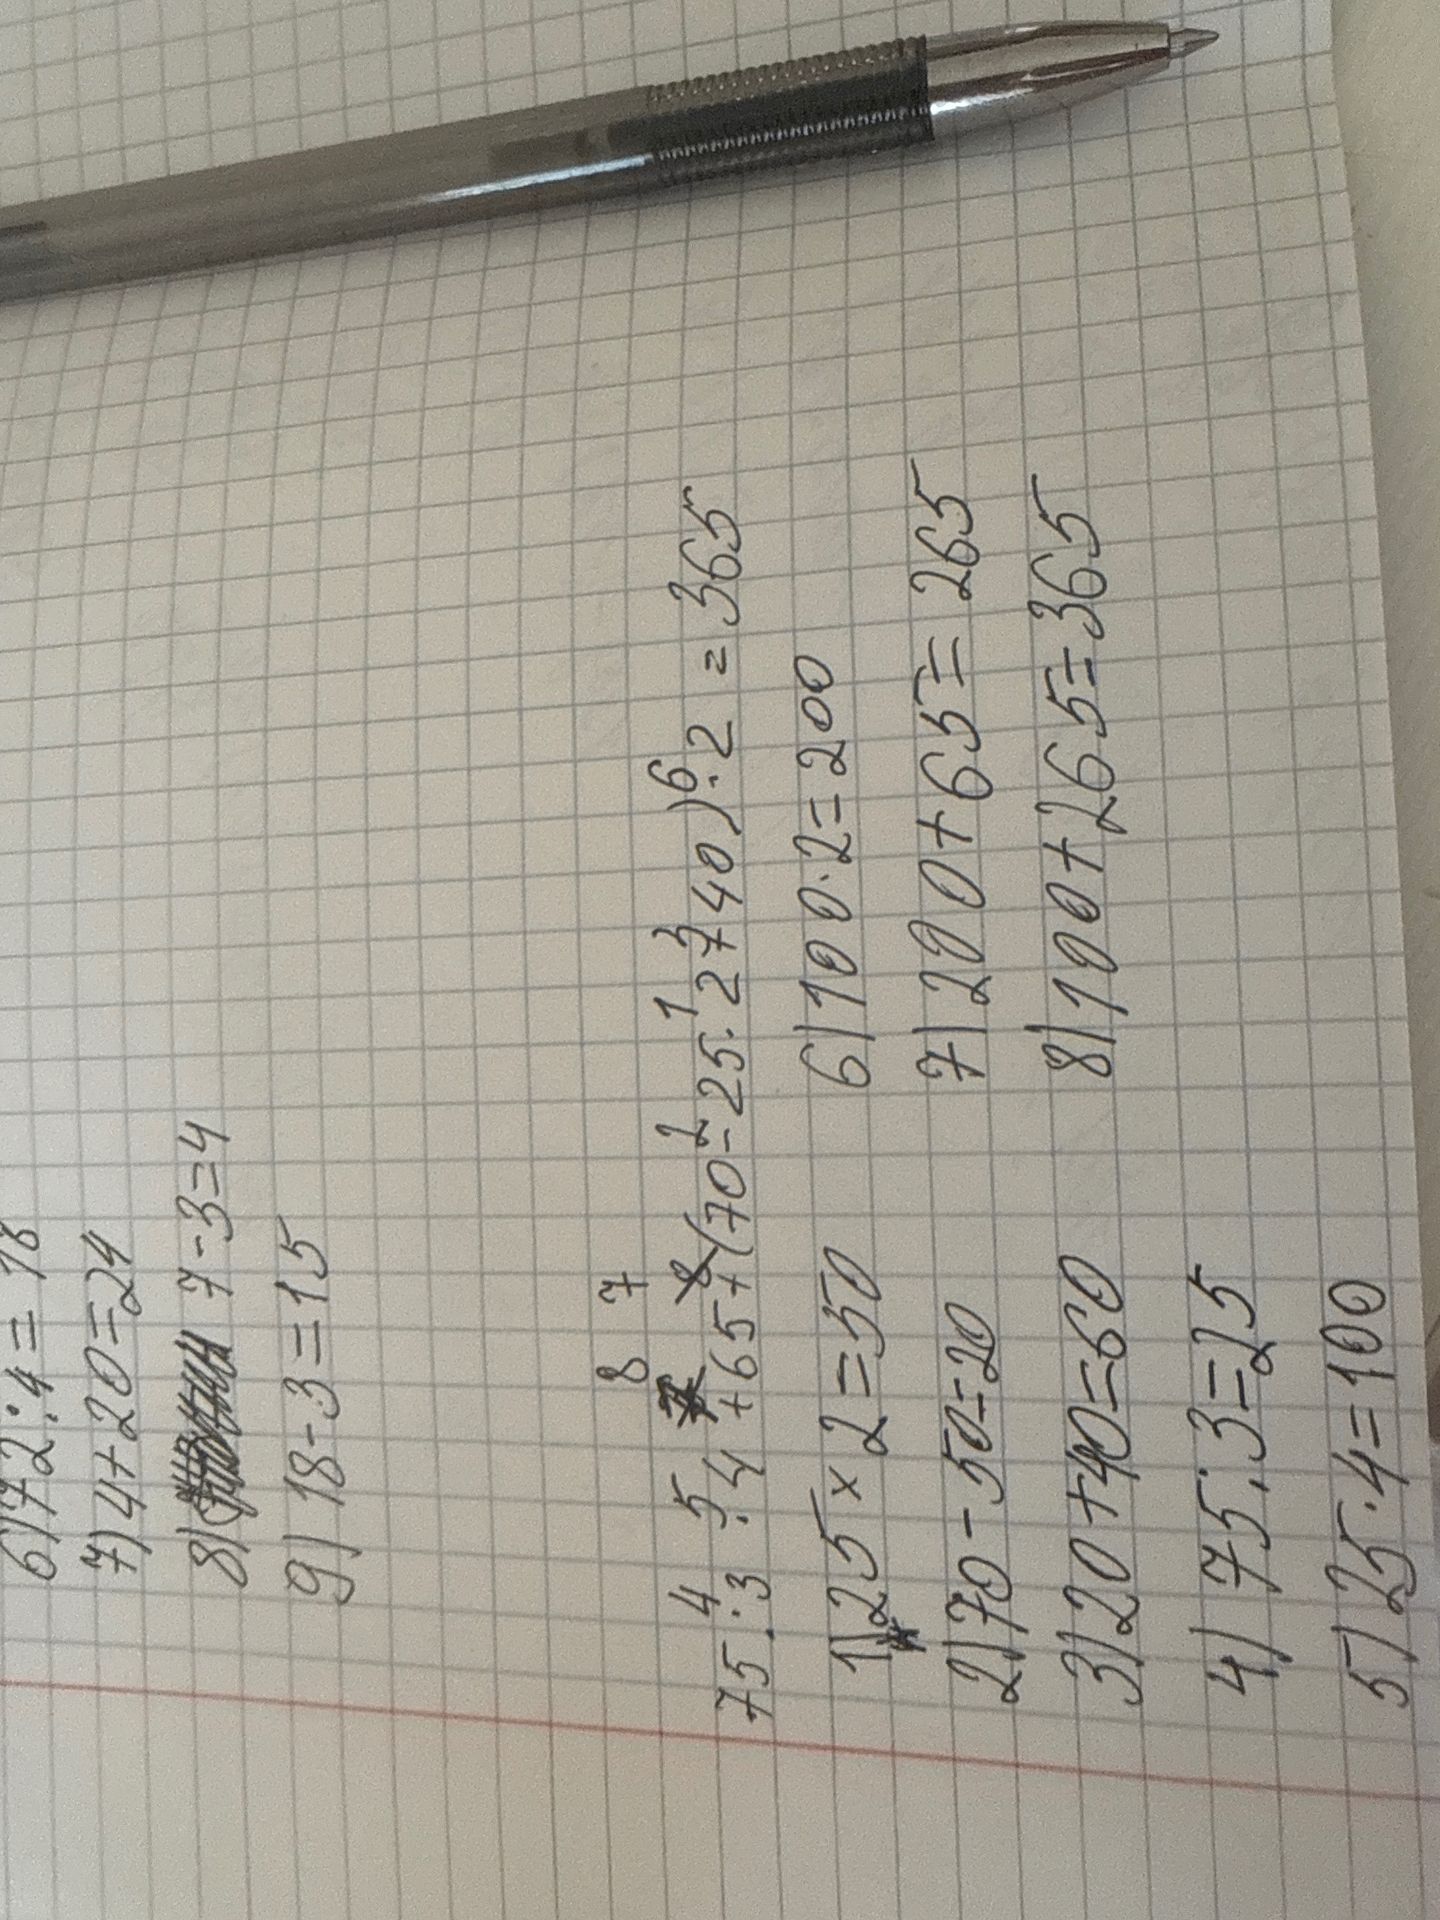 6) 72:4=18
7) 4+20=24
8) 7-3=4
9) 18-3=15
8 7
4 5 2 1 3 6
75:3·4+65+(70-25·2+40)·2=365
1) 25×2=50
2) 70-50=20
3) 20+40=60
4) 75:3=25
5) 25·4=100
6) 100·2=200
7) 200+65=265
8) 100+265=365